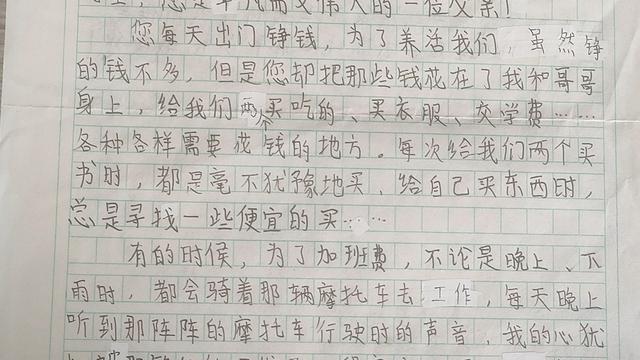 您是平凡而又伟大的一位父亲!
您每天出门铮钱，为了养活我们，虽然铮
的钱不多，但是您却把那些钱花在了我和哥哥
身上，给我们两个买吃的、买衣服、交学费……
各种各样需要花钱的地方。每次给我们两个买
书时，都是毫不犹豫地买，给自己买东西时，
总是寻找一些便宜的买……
有的时候，为了加班费，不论是晚上、下
雨时，都会骑着那辆摩托车去工作，每天晚上
听到那阵阵的摩托车行驶时的声音，我的心犹